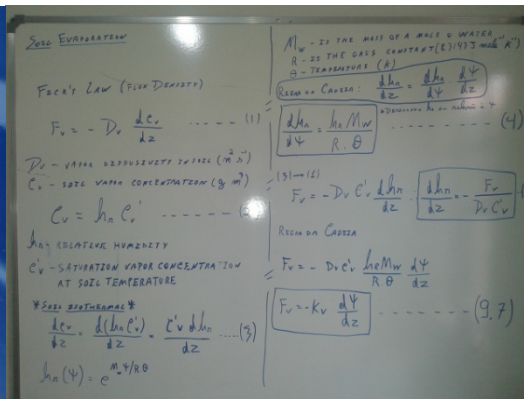 SOIL EVAPORATION
FICK'S LAW (FLUX DENSITY)
Fv = - Dv dCv/dz ----- (1)
Dv - VAPOR DIFFUSIVITY IN SOIL (m² s⁻¹)
Cv - SOIL VAPOR CONCENTRATION (g m³)
Cv = hn C'v ------
hn - RELATIVE HUMIDITY
C'v - SATURATION VAPOR CONCENTRATION
AT SOIL TEMPERATURE
*SOIL ISOTHERMAL*
dCv/dz = d(hn C'v)/dz = C'v dhn/dz ....(3)
hn(Ψ) = e^(MwΨ/Rθ)
Mw - IS THE MASS OF A MOLE OF WATER
R - IS THE GASS CONSTANT
θ - TEMPERATURE (K)
REGRA DA CADEIA: dhn/dz = dhn/dΨ dΨ/dz
dhn/dΨ = hn Mw/R.θ -------- (4)
(3)→(1)
Fv = - Dv C'v dhn/dz dhn/dz = - Fv/Dv C'v
REGRA DA CADEIA
Fv = - Dv C'v hn Mw/Rθ dΨ/dz
Fv = -Kv dΨ/dz ------- (9.7)